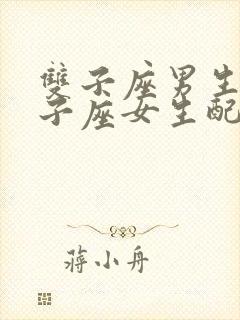 雙子座男生
子座女生配
蔣小舟